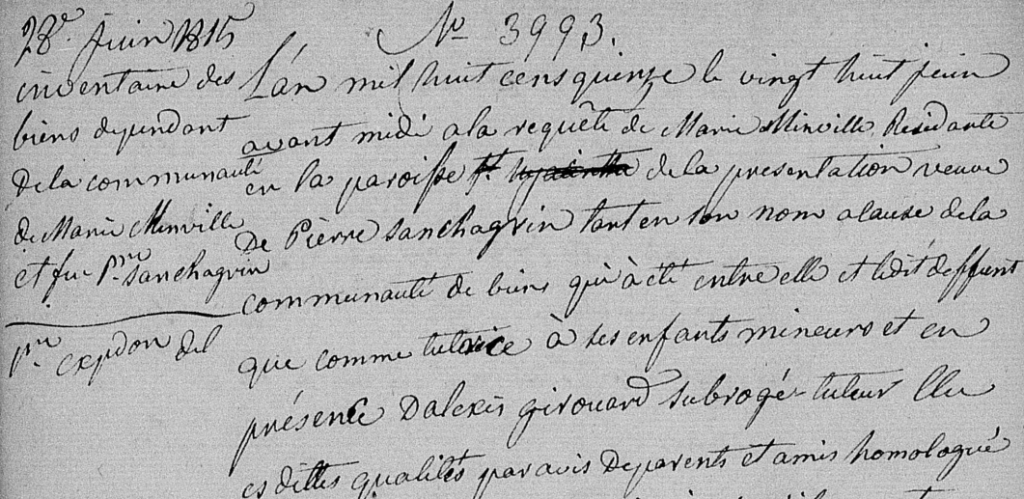 28e Juin 1815
inventaire des
biens dependant
De la communauté
de Marie Minville
et feu Prre Sanchagrin
pre expdon del
No 3993.
L'an mil huit cens quinze le vingt huit juin
avant midi a la requête de Marie Minville Residante
en la paroisse St. hyacinthe de la presentation veuve
De Piérre Sanchagrin tant en son nom a cause de la
communauté de biens qui à été entre elle et ledit deffunt
que comme tutrice à ses enfants mineurs et en
présence D'alexis girouard subrogé-tuteur Elu
es dittes qualités par avis De parents et amis homologué